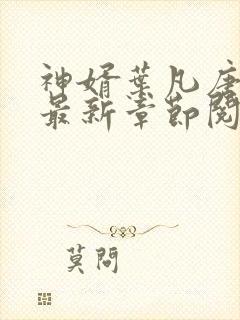 神婿葉凡唐
最新章節閱
莫問